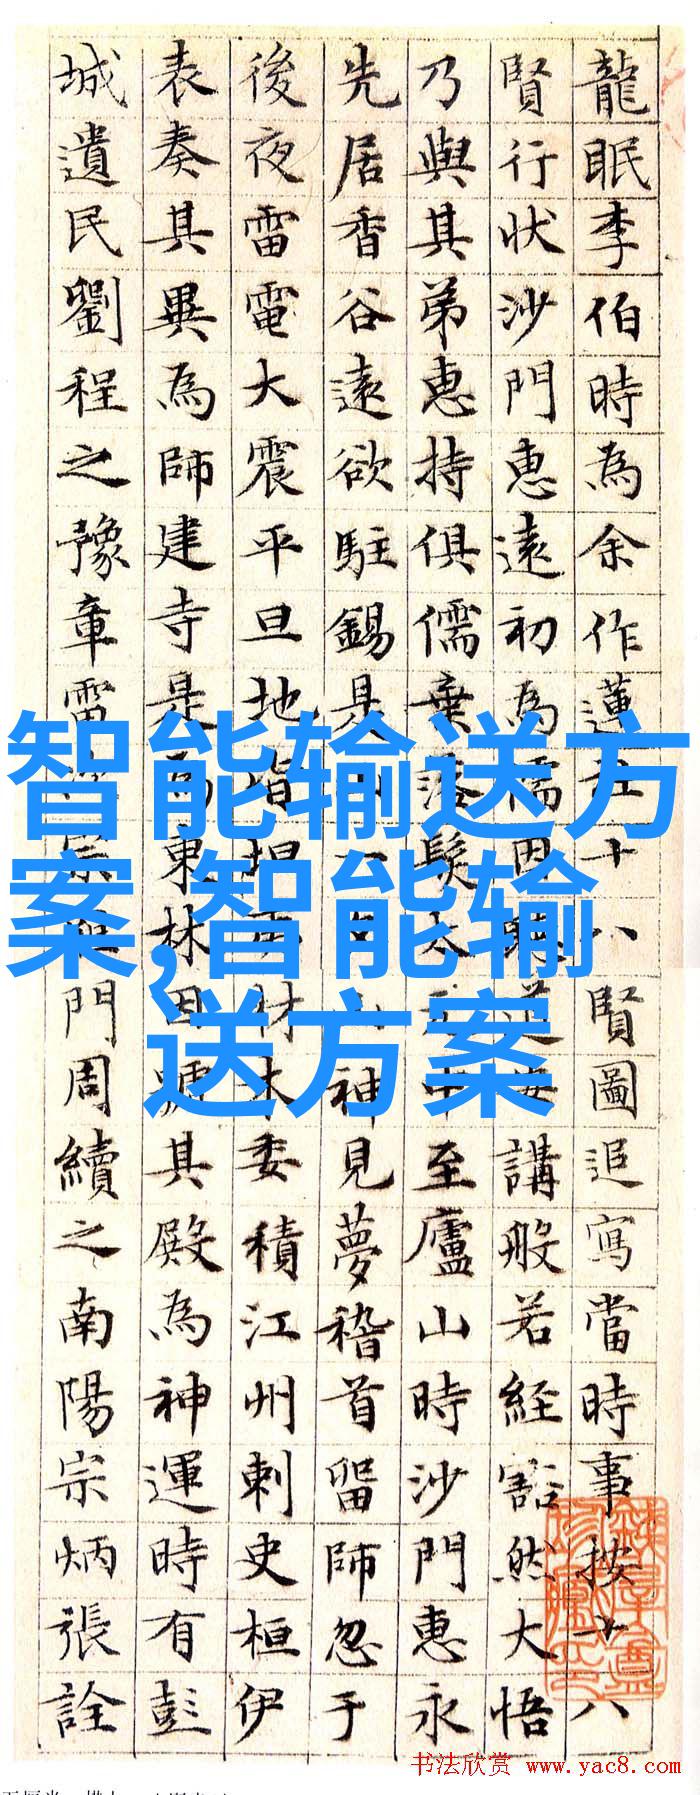 龍眠李伯時為余作蓮十八賢圖追寫當時事按十八
賢行狀沙門惠遠初為儒因講般若經豁然大悟
乃與其弟惠持俱儒棄落髮太中至廬山時沙門惠永
先居香谷遠欲駐錫是神見夢稽首留師忽于
後夜雷電大震平旦地皆坦材木委積江州刺史桓伊
表奏其異為師建寺是為東林因號其殿為神運時有彭
城遺民劉程之豫章雷宗門周續之南陽宗炳張詮
智能输送方
案,智能输
送方案
书法欣赏 www.yac8.com